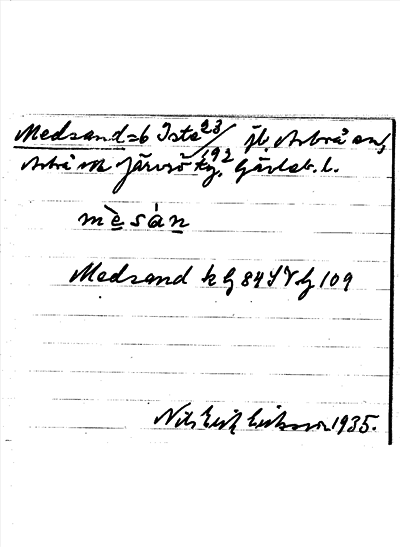 Medsand = b Iste 23/192 jb, Arbrå sn,
Arbrå ok Järvsö tg, Gävleb. l.
mèsán
Medsand k G 84 S V G 109
Nils Erik Eriksson 1935.